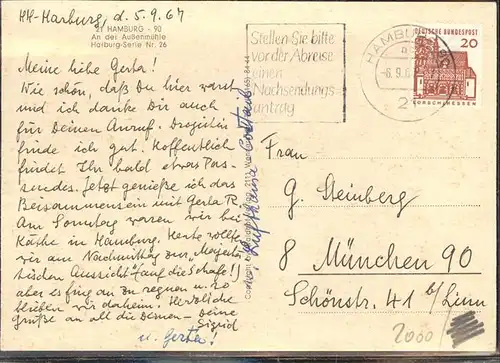 HH-Harburg, d. 5.9.67
21 HAMBURG - 90
An der Außenmühle
Harburg-Serie Nr. 26
Meine liebe Gerta!
Wie schön, daß Du hier warst
und ich danke Dir auch
für Deinen Anruf.
finde ich gut. Hoffentlich
findet Ihr bald etwas Pas-
sendes. Jetzt genieße ich das
Beisammensein mit Gerta R.
Am Sonntag waren wir bei
Käthe in Hamburg. Heute wollten
wir am Nachmittag zur „Majestä-
tischen Aussicht" (auf die Schafe!)
aber es fing an zu regnen u. so
blieben wir daheim. Herzliche
Grüße an all die Deinen - Deine
Sigrid
u. Gerta!
Stellen Sie bitte
vor der Abreise
einen
Nachsendungs-
antrag
HAMBURG 90
-6.9.6
2
DEUTSCHE BUNDESPOST
20
LORSCH HESSEN
Frau
G. Steinberg
8 München 90
Schönstr. 41 b/Linn
2000